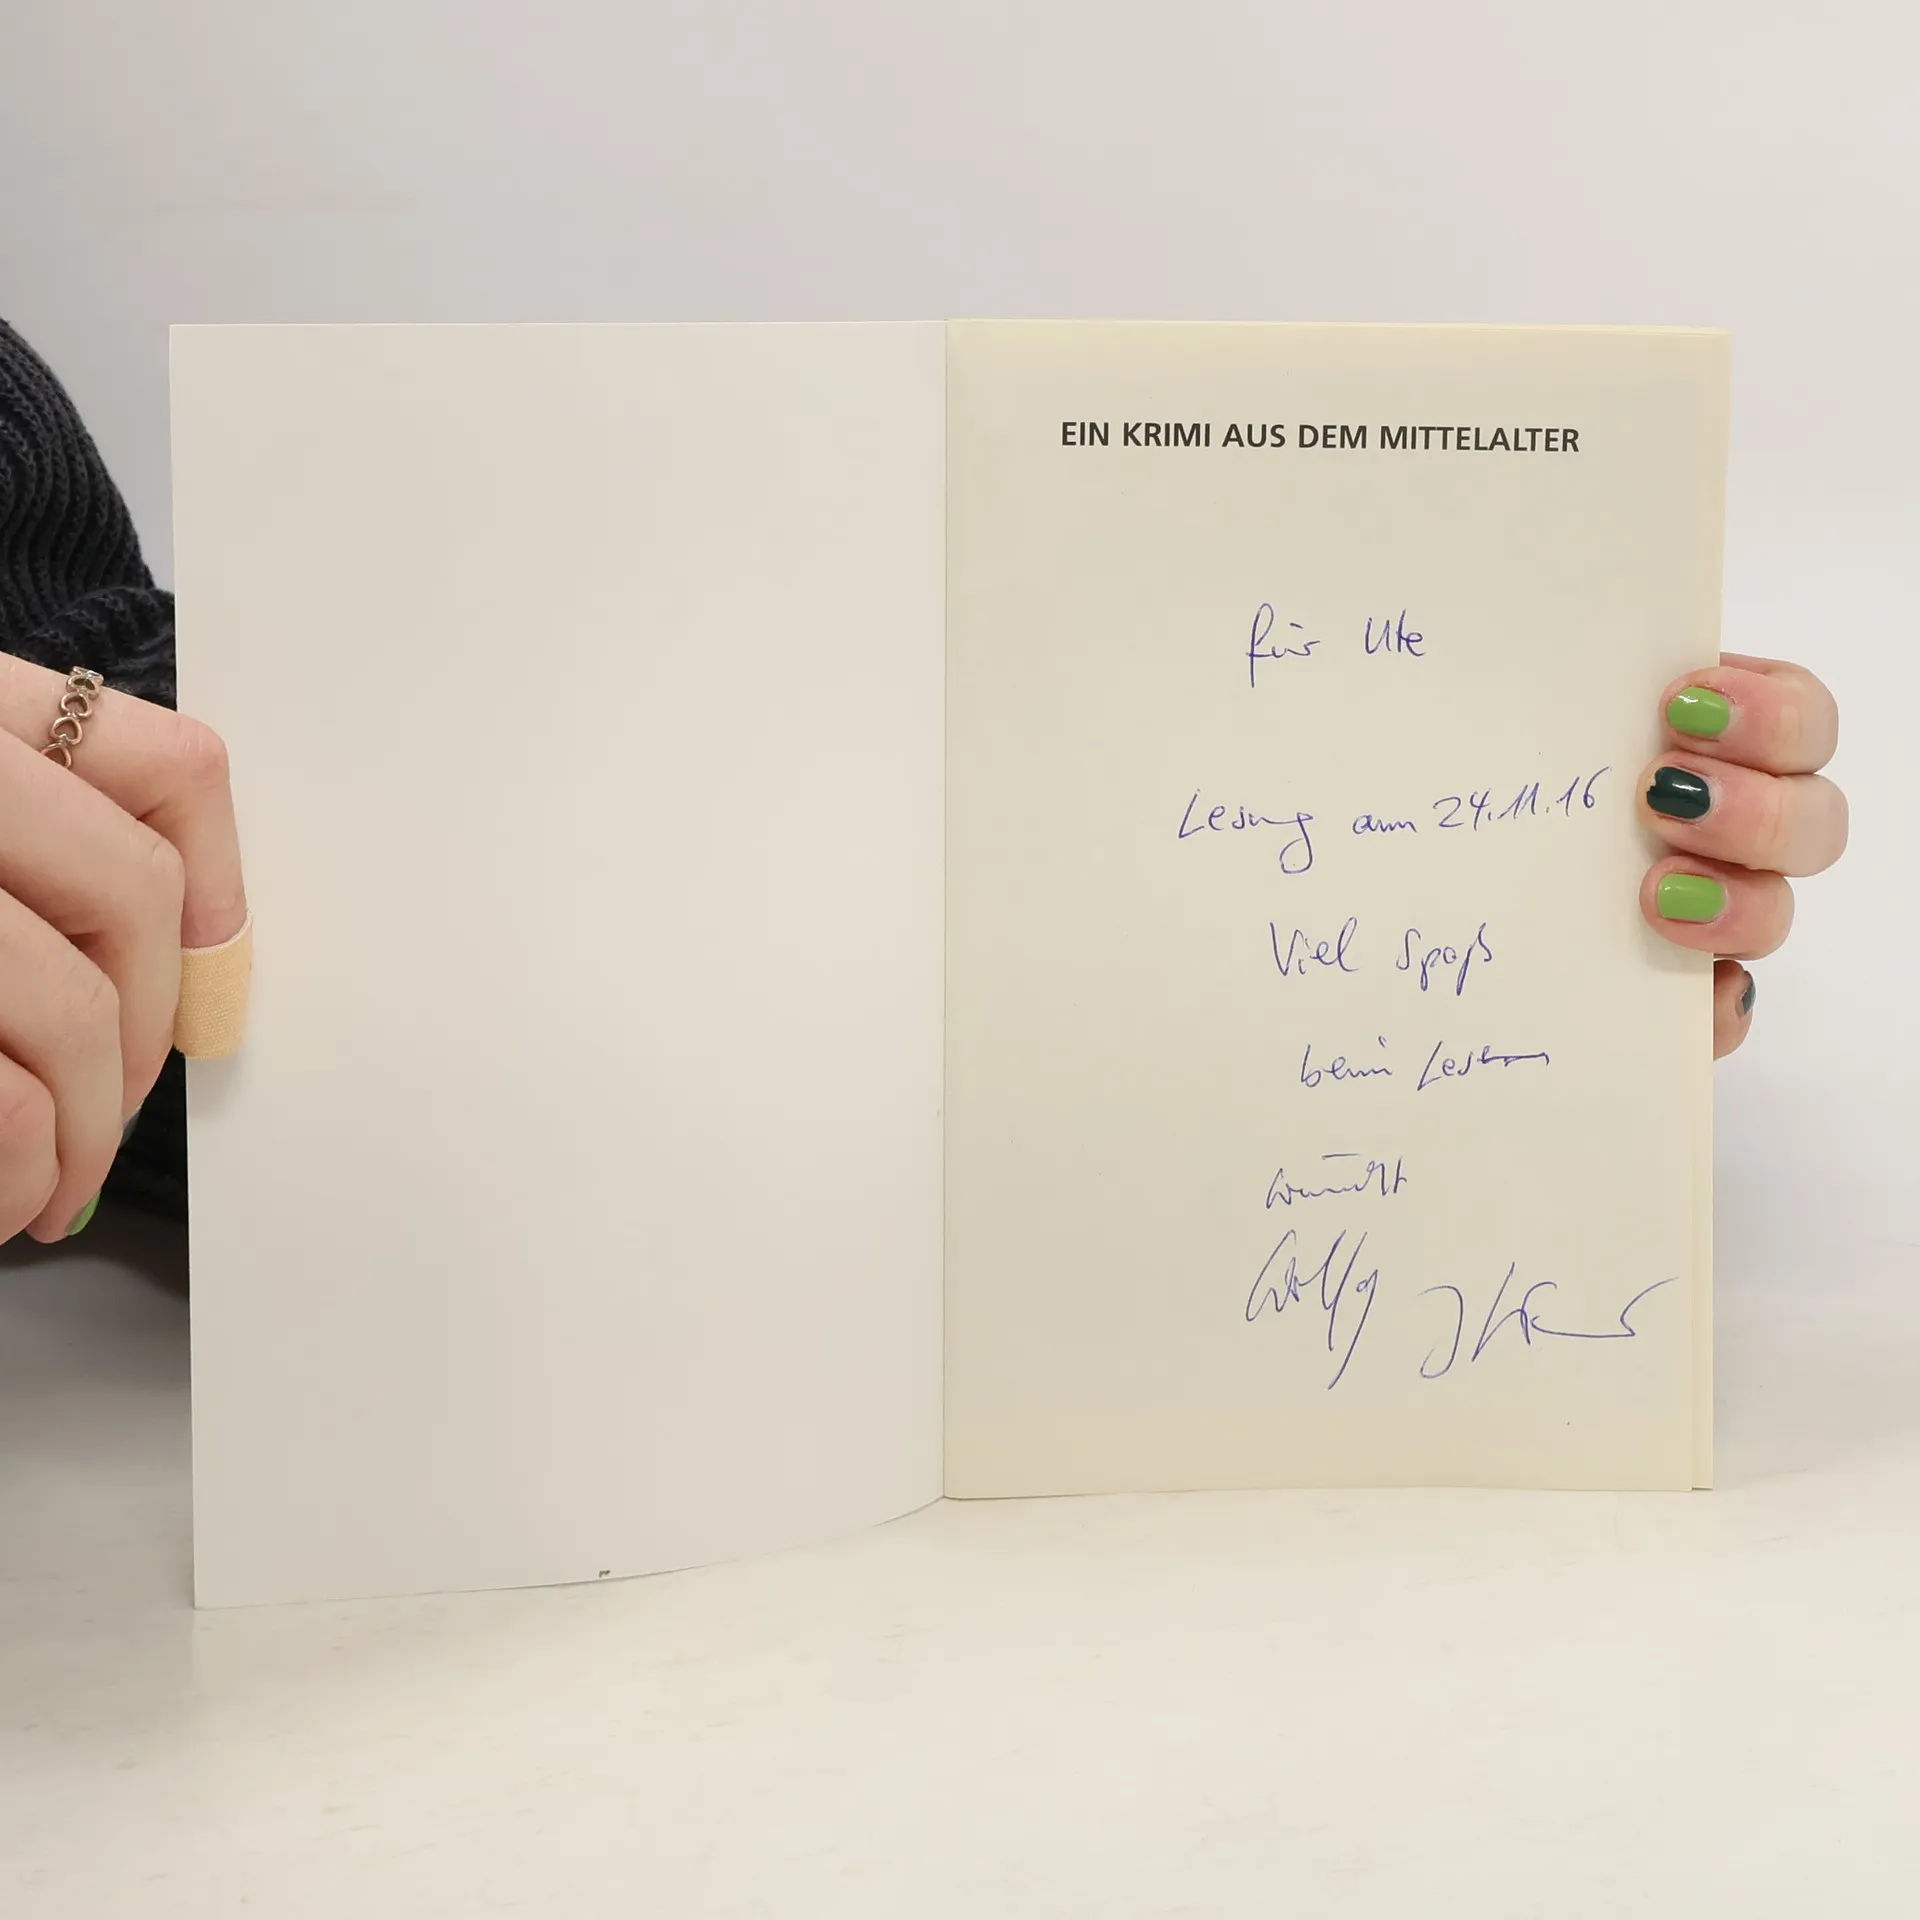 EIN KRIMI AUS DEM MITTELALTER
für Ute
Lesung am 24.11.16
Viel Spaß
beim Lesen
wünscht